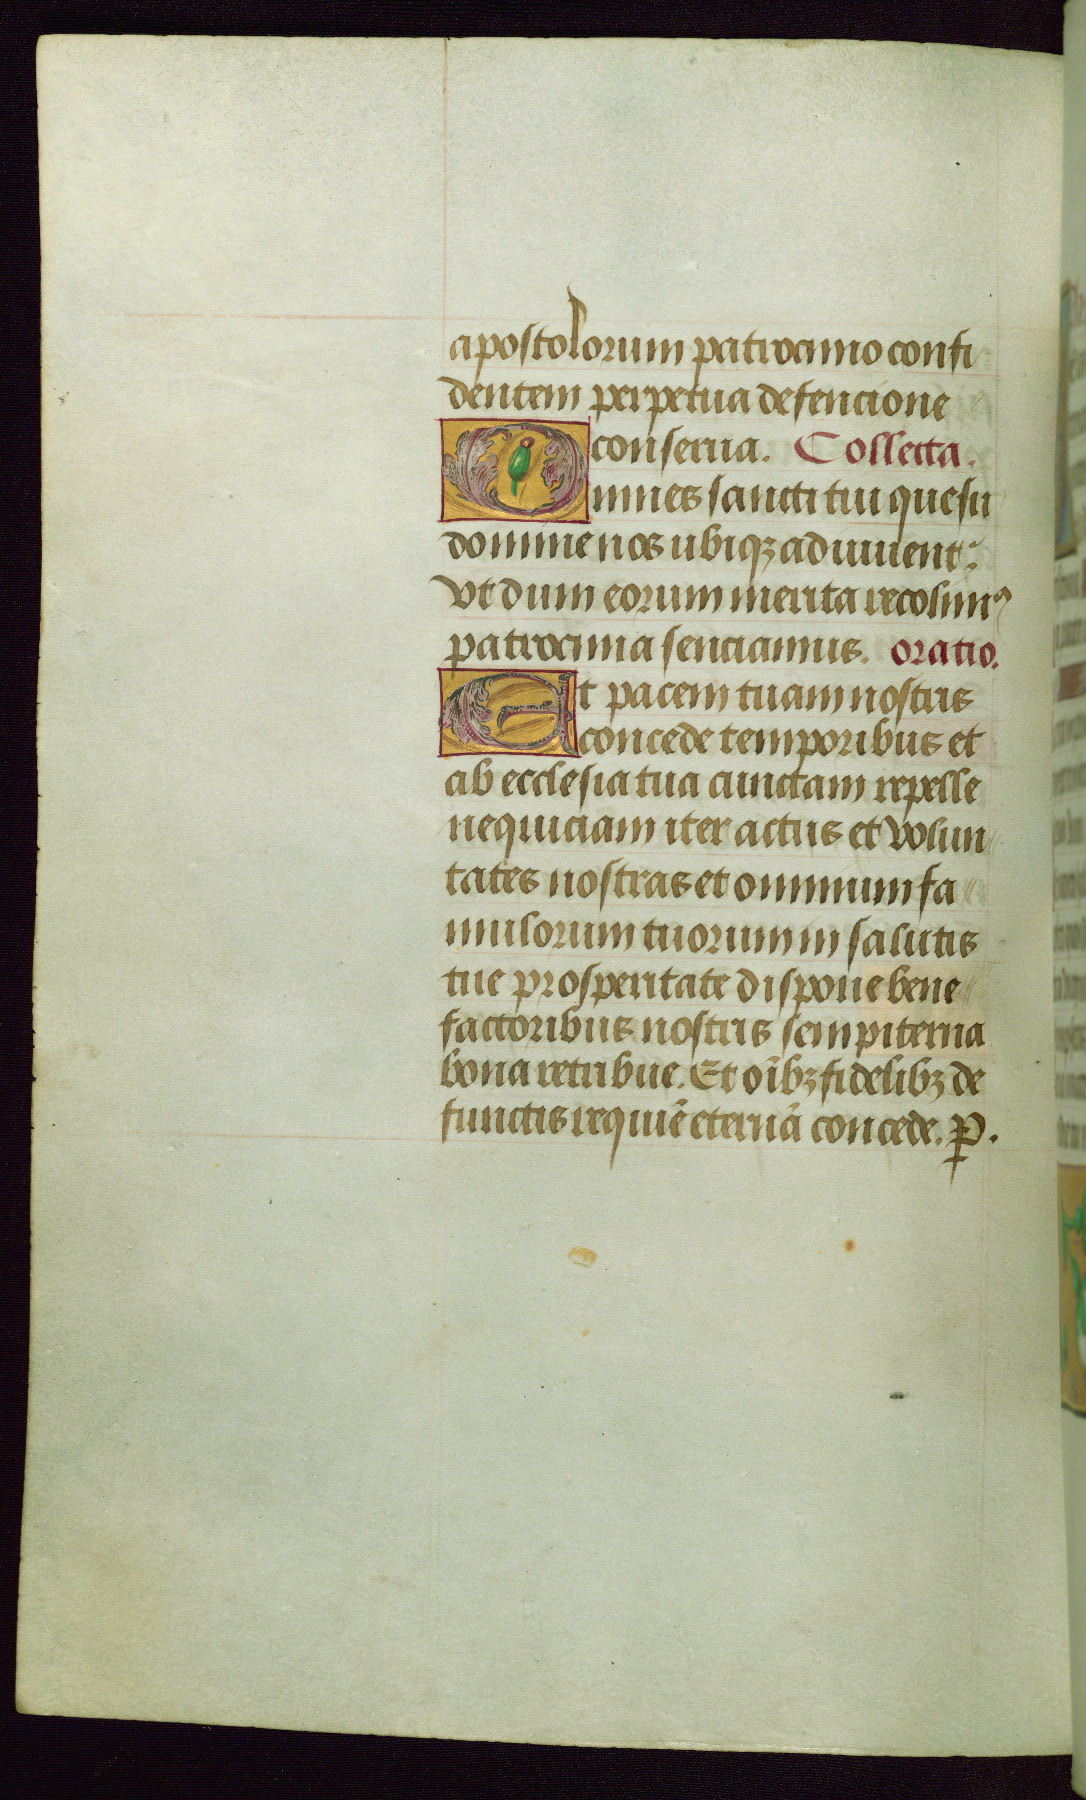 apostolorum patrocinio confi
dentem perpetua defencione
conserua. Collecta.
Omnes sancti tui quesu
domine nos ubiqꝫ adiuuent:
vt dum eorum merita recolimꝰ
patrocinia senciamus. oratio.
Et pacem tuam nostris
concede temporibus et
ab ecclesia tua cunctam repelle
nequiciam iter actus et volun
tates nostras et omnium fa
mulorum tuorum in salutis
tue prosperitate dispone bene
factoribus nostris sempiterna
bona retribue. Et oı̄bꝫ fidelibꝫ de
functis requiē eternā concede. P.